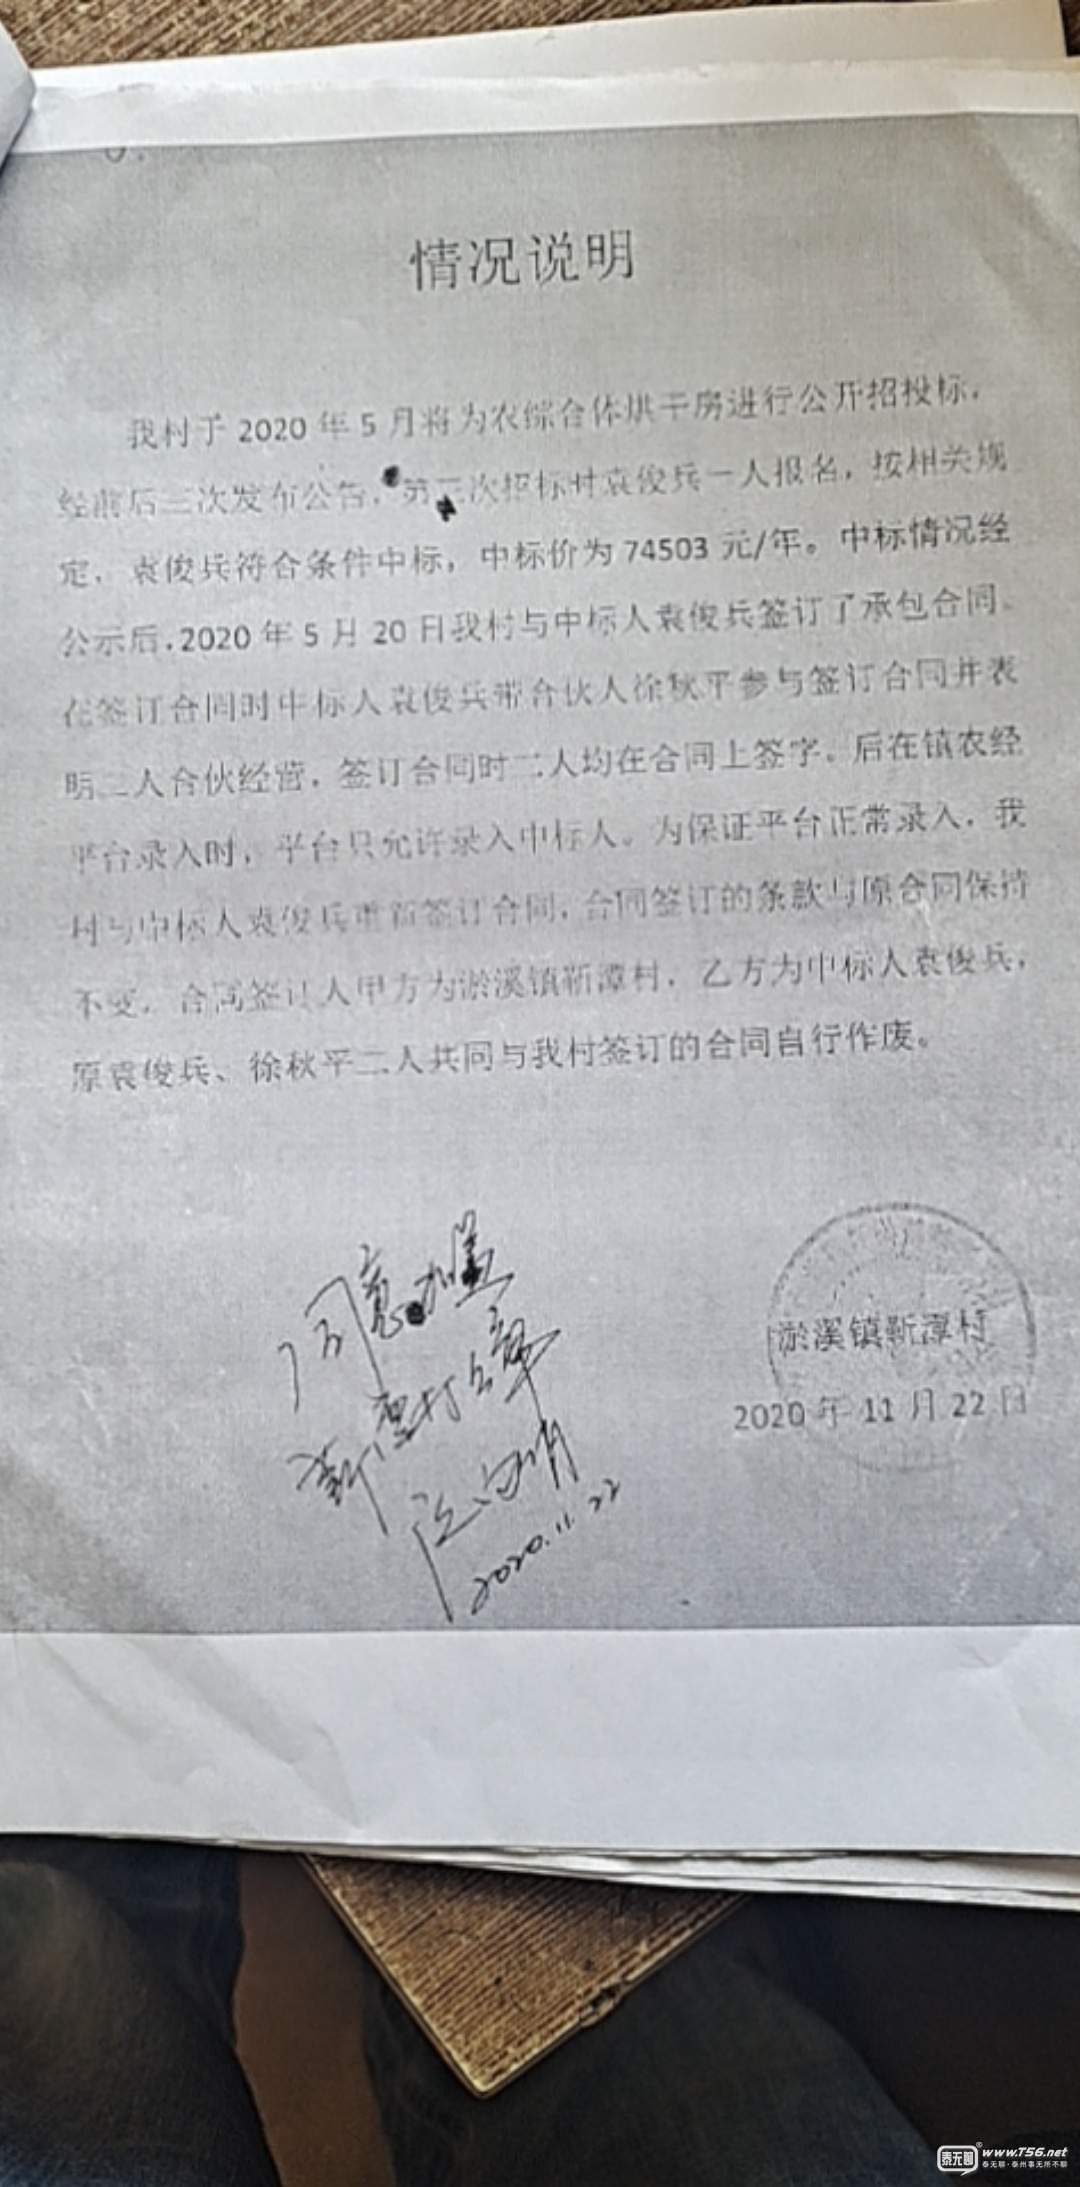 情况说明
我村于 2020 年 5 月将为农综合体烘干房进行公开招投标，
经前后三次发布公告，第三次招标时袁俊兵一人报名，按相关规
定，袁俊兵符合条件中标，中标价为 74503 元/年。中标情况经
公示后，2020 年 5 月 20 日我村与中标人袁俊兵签订了承包合同。
在签订合同时中标人袁俊兵带合伙人徐秋平参与签订合同并表
明二人合伙经营，签订合同时二人均在合同上签字。后在镇农经
平台录入时，平台只允许录入中标人。为保证平台正常录入，我
村与中标人袁俊兵重新签订合同，合同签订的条款与原合同保持
不变，合同签订人甲方为淤溪镇靳潭村，乙方为中标人袁俊兵，
原袁俊兵、徐秋平二人共同与我村签订的合同自行作废。
同意加盖
靳潭村公章
2020.11.22
淤溪镇靳潭村
2020 年 11 月 22 日
泰无聊
www.T56.net
泰无聊·泰州事无所不聊